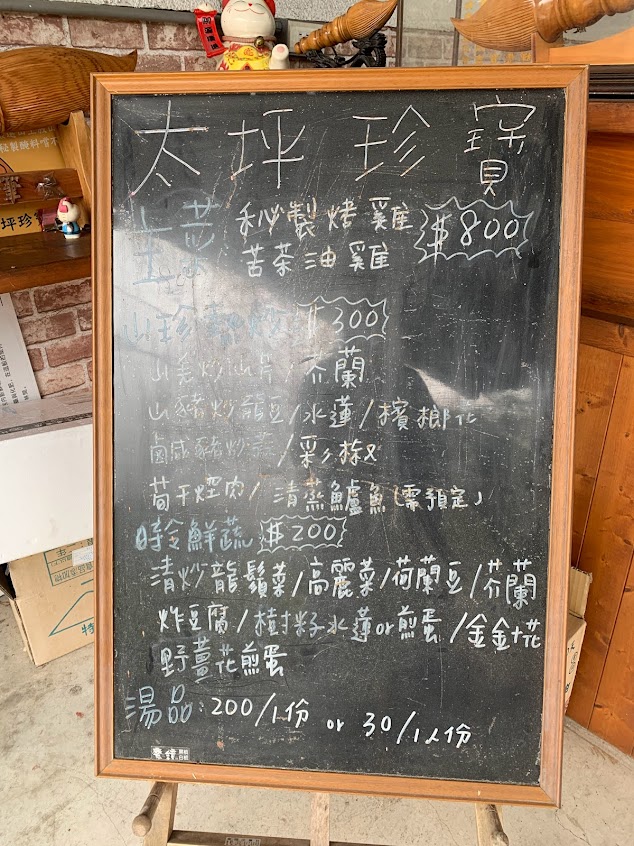 太坪珍寶
主菜 秘製烤雞 $800
苦茶油雞
山珍熱炒 $300
山羊炒山芹/芥蘭
山豬炒龍豆/水蓮/檳榔花
鹹豬炒蒜/彩椒
荀干焢肉/清蒸鱸魚(需預定)
時令鮮蔬 $200
清炒龍鬚菜/高麗菜/荷蘭豆/芥蘭
炸豆腐/樹籽水蓮or煎蛋/金針花
野薑花煎蛋
湯品:200/1份 or 30/1人份
坪珍